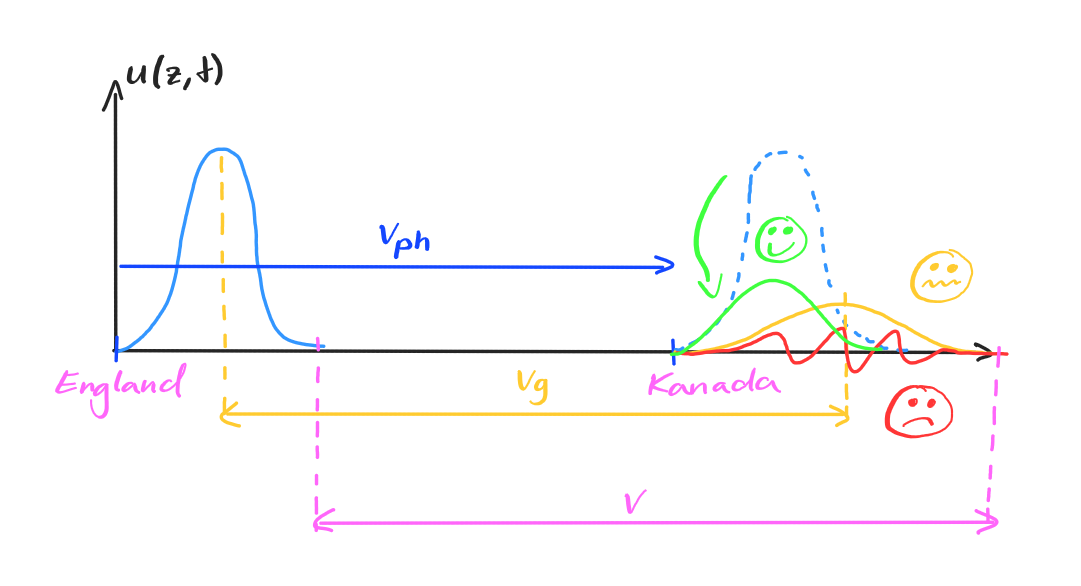 u(z,t)
Vph
England
Vg
Kanada
V